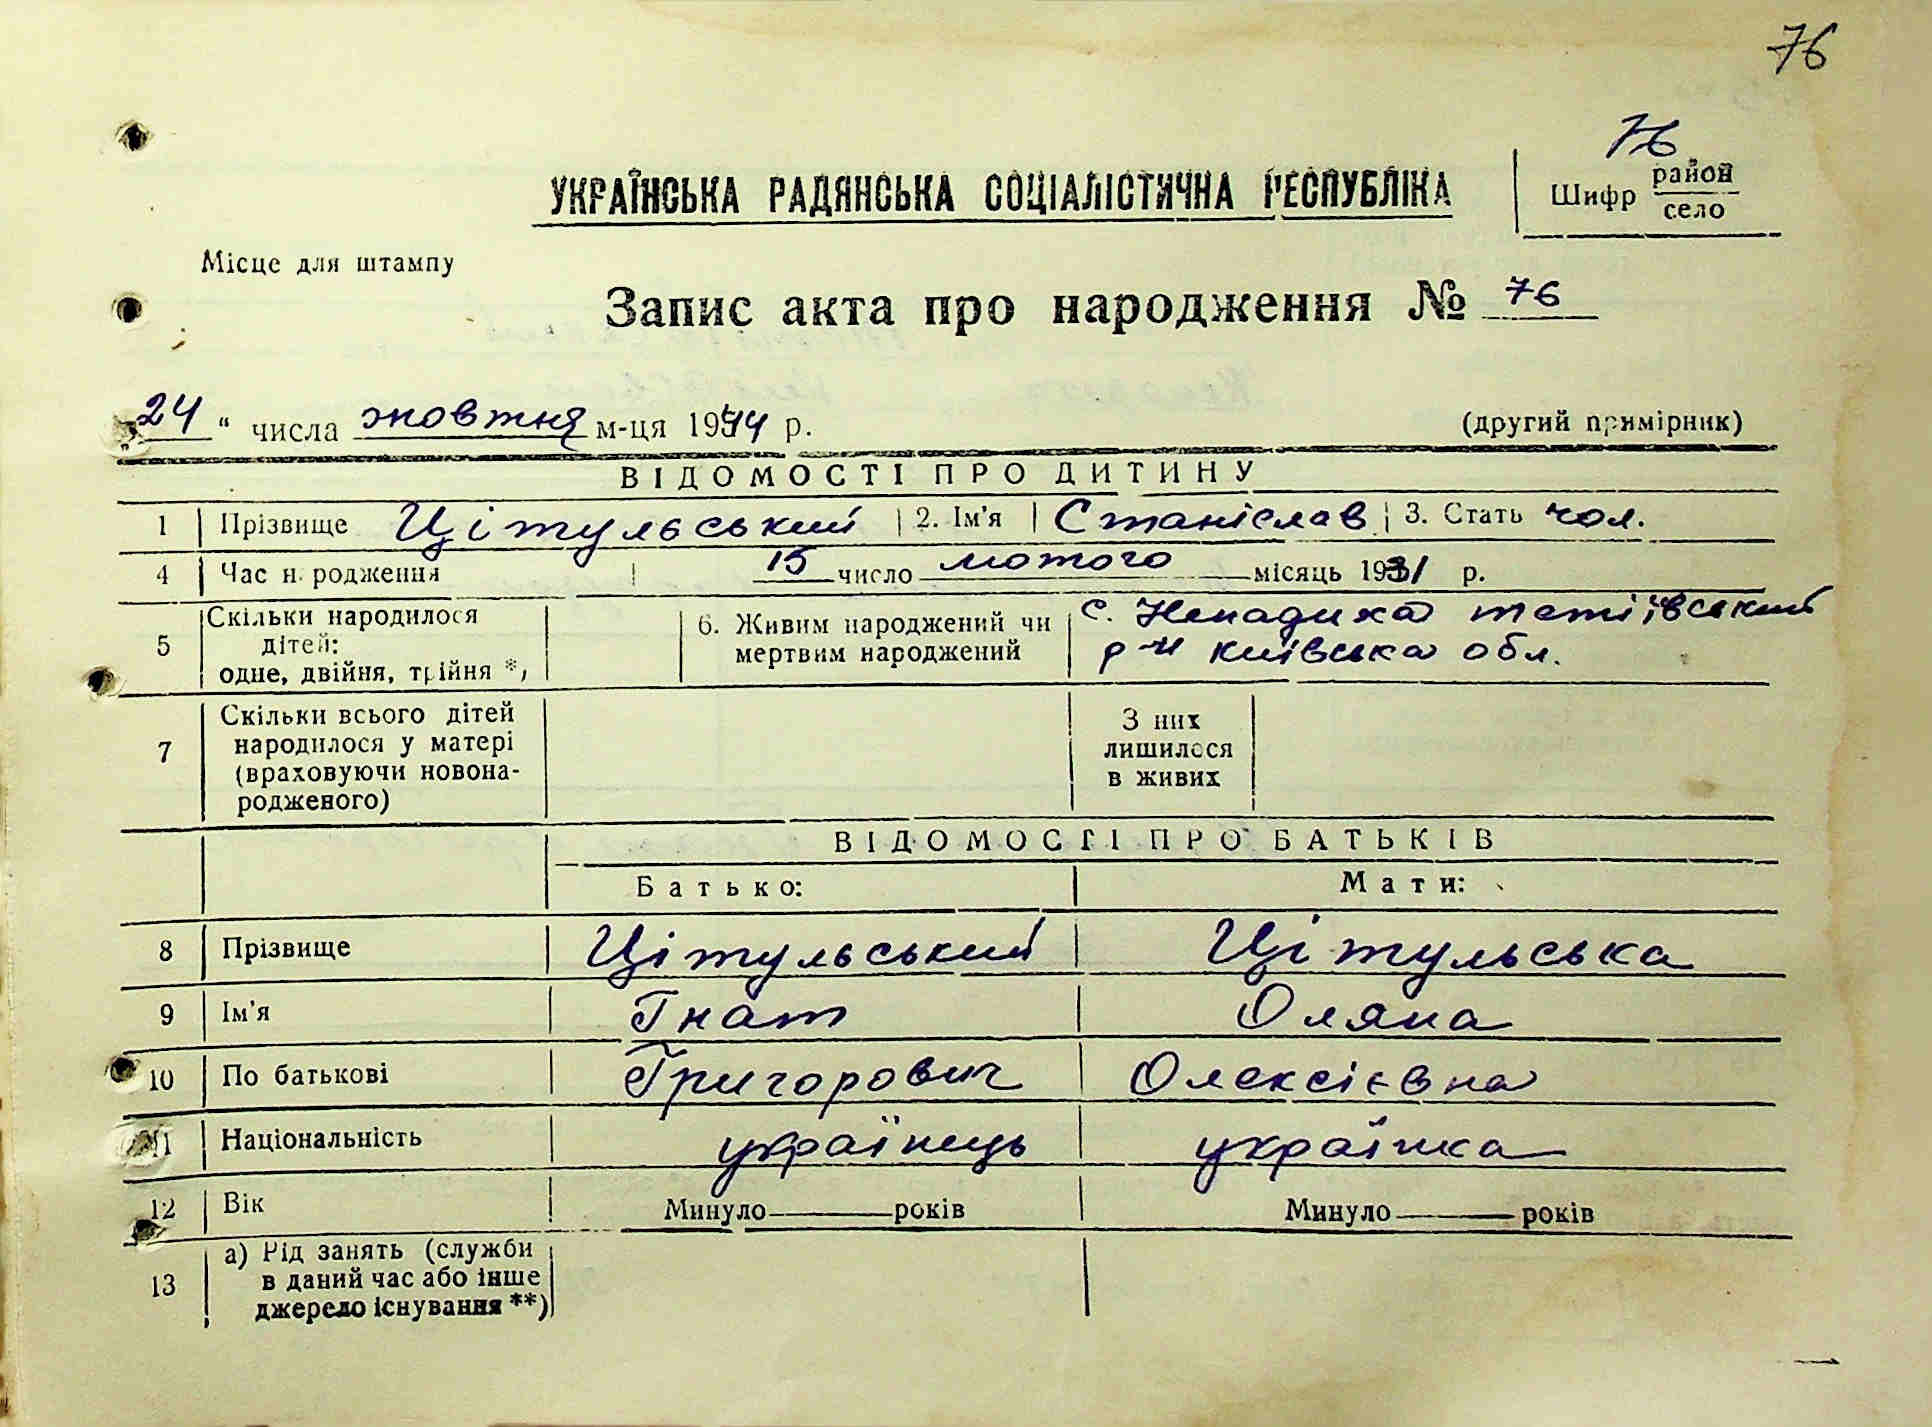 76
76
УКРАЇНСЬКА РАДЯНСЬКА СОЦІАЛІСТИЧНА РЕСПУБЛІКА
Шифр район
село
Місце для штампу
Запис акта про народження № 76
24 " числа жовтня м-ця 1944 р.
(другий примірник)
ВІДОМОСТІ ПРО ДИТИНУ
1 Прізвище Цітульський 2. Ім'я Станіслав 3. Стать чол.
4 Час народження 15 число лютого місяць 1931 р.
5 Скільки народилося дітей: одне, двійня, трійня *)
6. Живим народжений чи мертвим народжений
с. Ненадиха тетіївський
р-н київська обл.
7 Скільки всього дітей народилося у матері (враховуючи новонародженого)
З них лишилося в живих
ВІДОМОСТІ ПРО БАТЬКІВ
Батько: Мати:
8 Прізвище Цітульський Цітульська
9 Ім'я Гнат Оляна
10 По батькові Григорович Олексієвна
11 Національність українець українка
12 Вік Минуло років Минуло років
13 а) Рід занять (служби
в даний час або інше
джерело існування **)